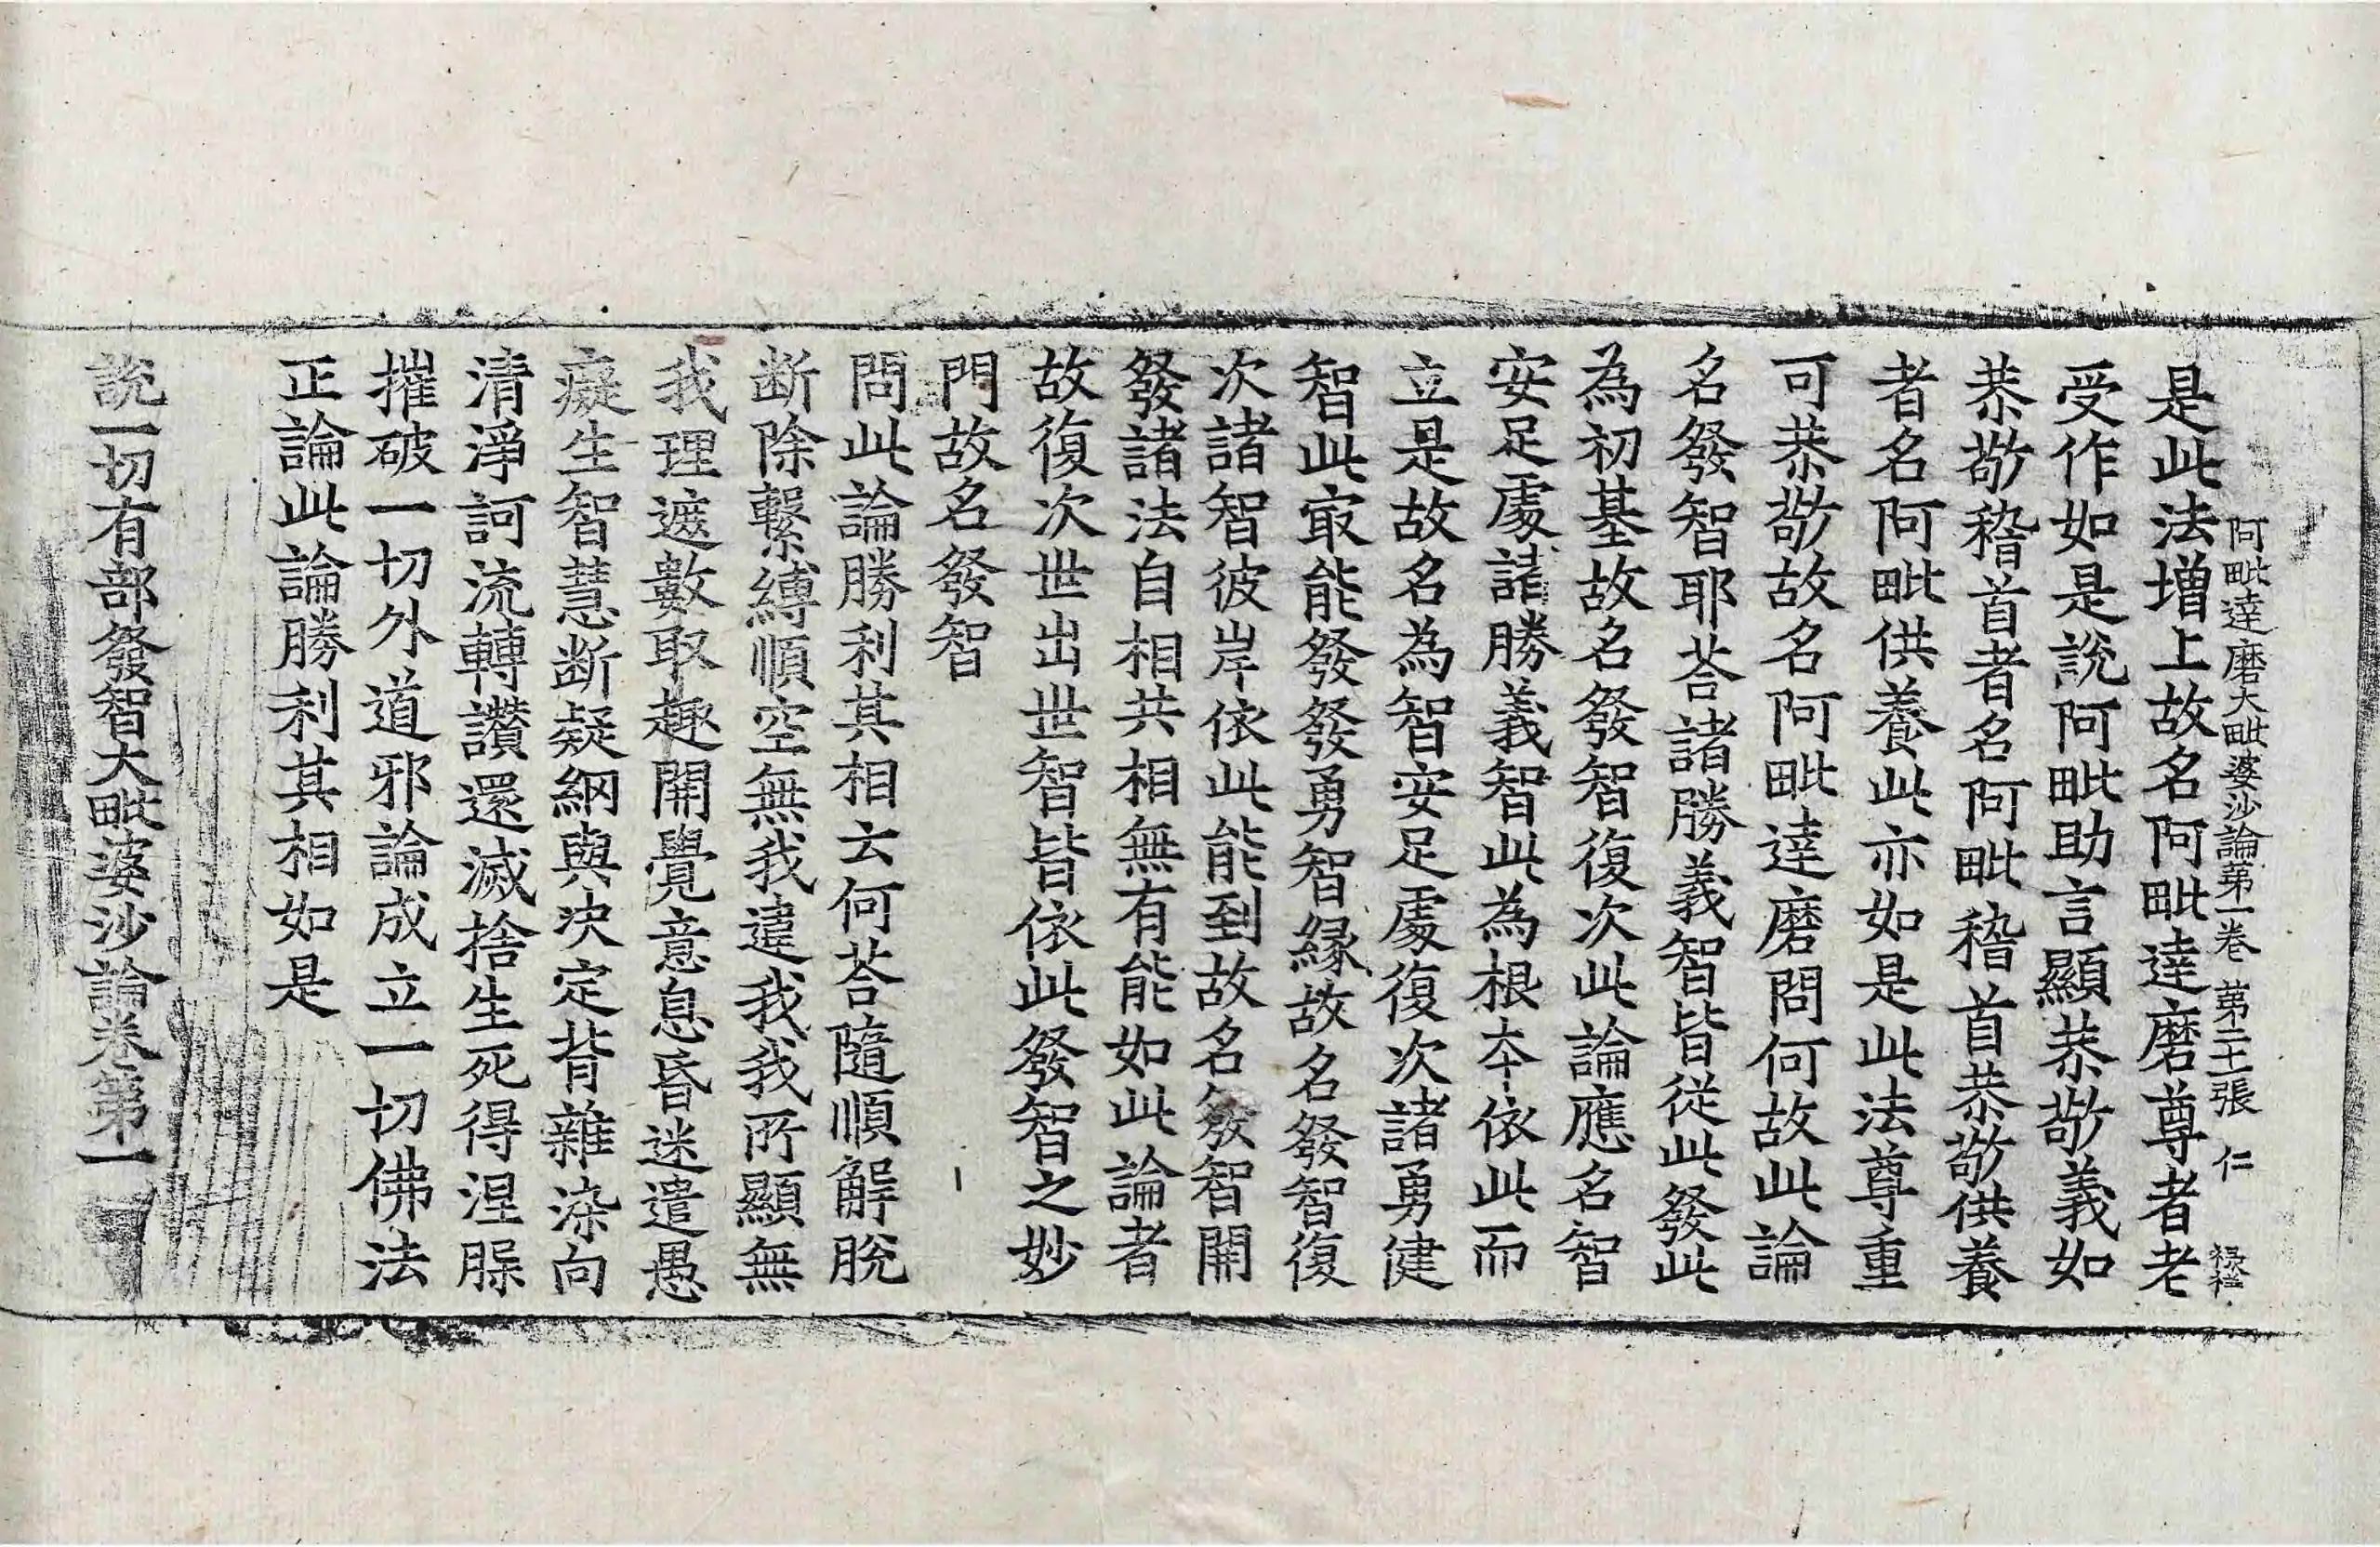 阿毗達磨大毗婆沙論第一卷 第二十張 仁
是此法增上故名阿毗達磨尊者老
受作如是說阿毗助言顯恭敬義如
恭敬稽首者名阿毗稽首恭敬供養
者名阿毗供養此亦如是此法尊重
可恭敬故名阿毗達磨問何故此論
名發智耶荅諸勝義智皆從此發此
為初基故名發智復次此論應名智
安足處諸勝義智此為根本依此而
立是故名為智安足處復次諸勇健
智此㝡能發發勇智緣故名發智復
次諸智彼岸依此能到故名發智開
發諸法自相共相無有能如此論者
故復次世出世智皆依此發智之妙
門故名發智
問此論勝利其相云何荅隨順解脫
断除繫縛順空無我違我我所顯無
我理遮數取趣開覺意息昏迷遣愚
癡生智慧断疑網與决定背雜染向
清淨訶流轉讚還滅捨生死得涅槃
摧破一切外道邪論成立一切佛法
正論此論勝利其相如是
說一切有部發智大毗婆沙論卷第一